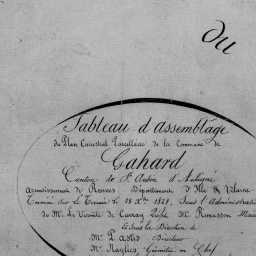 du
Tableau d'Assemblage
du Plan Cadastral Parcellaire de la Commune de
Gahard
Canton de St Aubin d'Aubigné
Arrondissement de Rennes Département d'Ile & Vilaine
Terminé sur le Terrain le 1821, sous l'Administration
de Mr. Le Vicomte de Préfet Mr. Maire
et sous la Direction de
Mr. Directeur
Mr. Géomètre en Chef